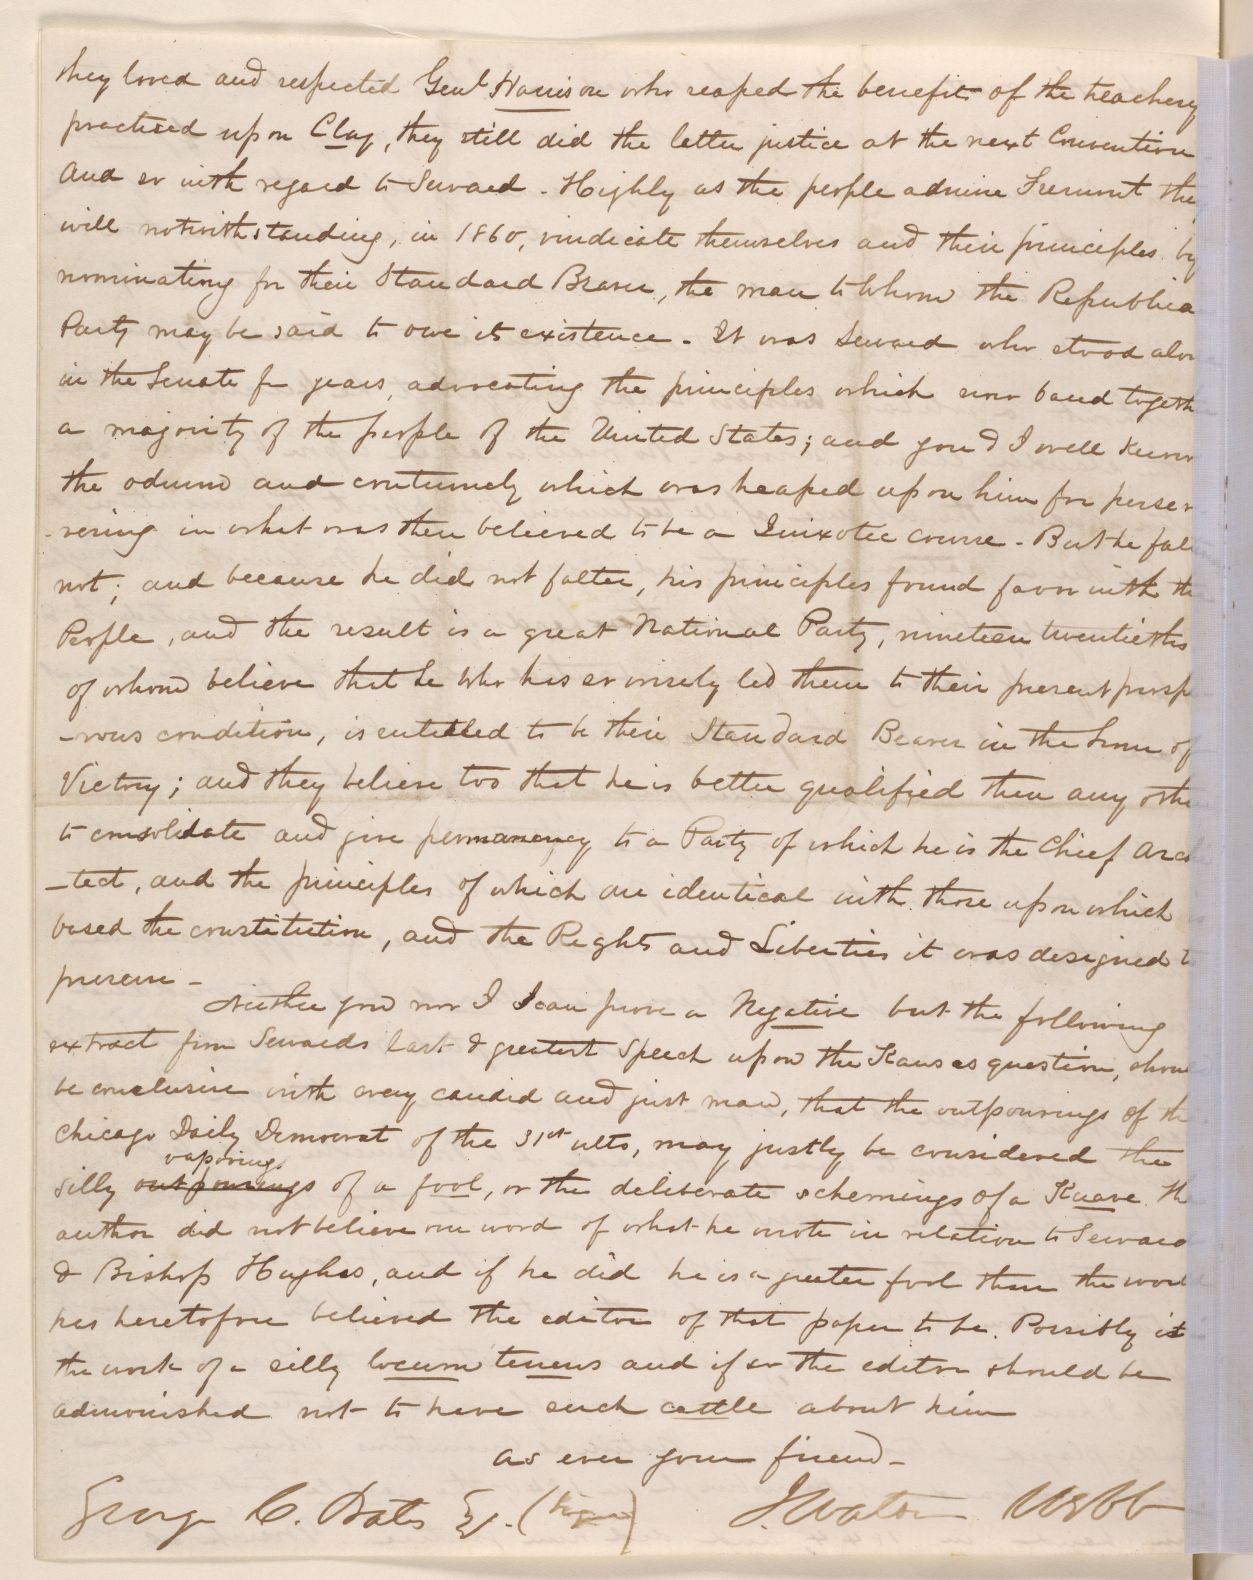 they loved and respected Genl Harrison who reaped the benefits of the treachery
practised upon Clay, they still did the latter justice at the next Convention
And so with regard to Seward - Highly as the people admire Fremont the
will notwithstanding, in 1860, vindicate themselves and their principles by
nominating for their Standard Bearer, the man to whom the Republica
Party may be said to owe its existence - It was Seward who stood alo
in the Senate for years, advocating the principles which now band togeth
a majority of the people of the United States; and you & I well know
the odium and contumely which was heaped upon him for perse
-vering in what was then believed to be a Quixotic course - But he fal
not; and because he did not falter, his principles found favor with th
People, and the result is a great National Party, nineteen twentieths
of whom believe that he who has so wisely led them to their present prosp
-rous condition, is entitled to be their Standard Bearer in the hour of
Victory; and they believe too that he is better qualified than any othe
to consolidate and give permanency to a Party of which he is the Chief Arc
-tect, and the principles of which are identical with those upon which
based the constitution, and the Rights and Liberties it was designed t
preserve -
Neither you nor I can prove a Negative but the following
extract from Sewards last & greatest Speech upon the Kansas question, shou
be conclusive with every candid and just man, that the outpourings of th
Chicago Daily Democrat of the 31st ulto, may justly be considered the
vaporings
silly outpourings of a fool, or the deliberate schemings of a Knave. Th
author did not believe one word of what he wrote in relation to Seward
& Bishop Hughes, and if he did he is a greater fool than the worl
has heretofore believed the editor of that paper to be. Possibly it
the work of a silly locum tenens and if so the editor should be
admonished not to have such cattle about him
As ever your friend -
George C. Bates Esq. (Signed) J. Watson Webb